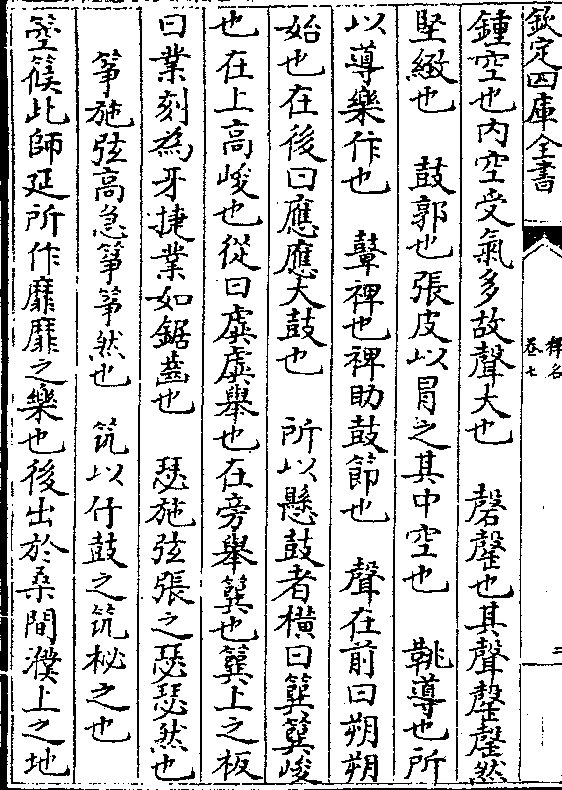 欽定四庫全書
釋名
卷七
二
鍾空也内空受氣多故聲大也　磬罄也其聲罄罄然
堅緻也　鼓郭也張皮以冒之其中空也　鞉導也所
以導樂作也　鼙裨也裨助鼓節也　聲在前曰朔朔
始也在後曰應應大鼓也　所以懸鼓者橫曰簨簨峻
也在上高峻也從曰虡虡舉也在旁舉簨也簨上之板
曰業刻為牙捷業如鋸齒也　瑟施弦張之瑟瑟然也
筝施弦高急筝筝然也　筑以竹鼓之筑柲之也
箜篌此師延所作靡靡之樂也後出於桑間濮上之地